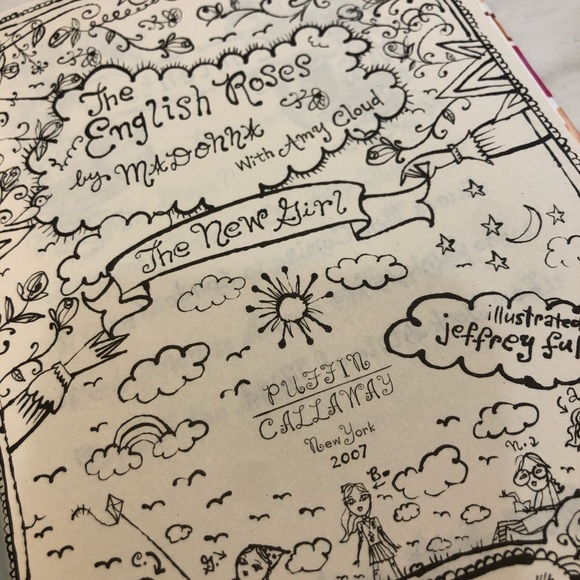 The
English Roses
by MADONNA
With Amy Cloud
The New Girl
illustrated
jeffrey
PUFFIN
CALLAWAY
New York
2007
B.
n.2
C.